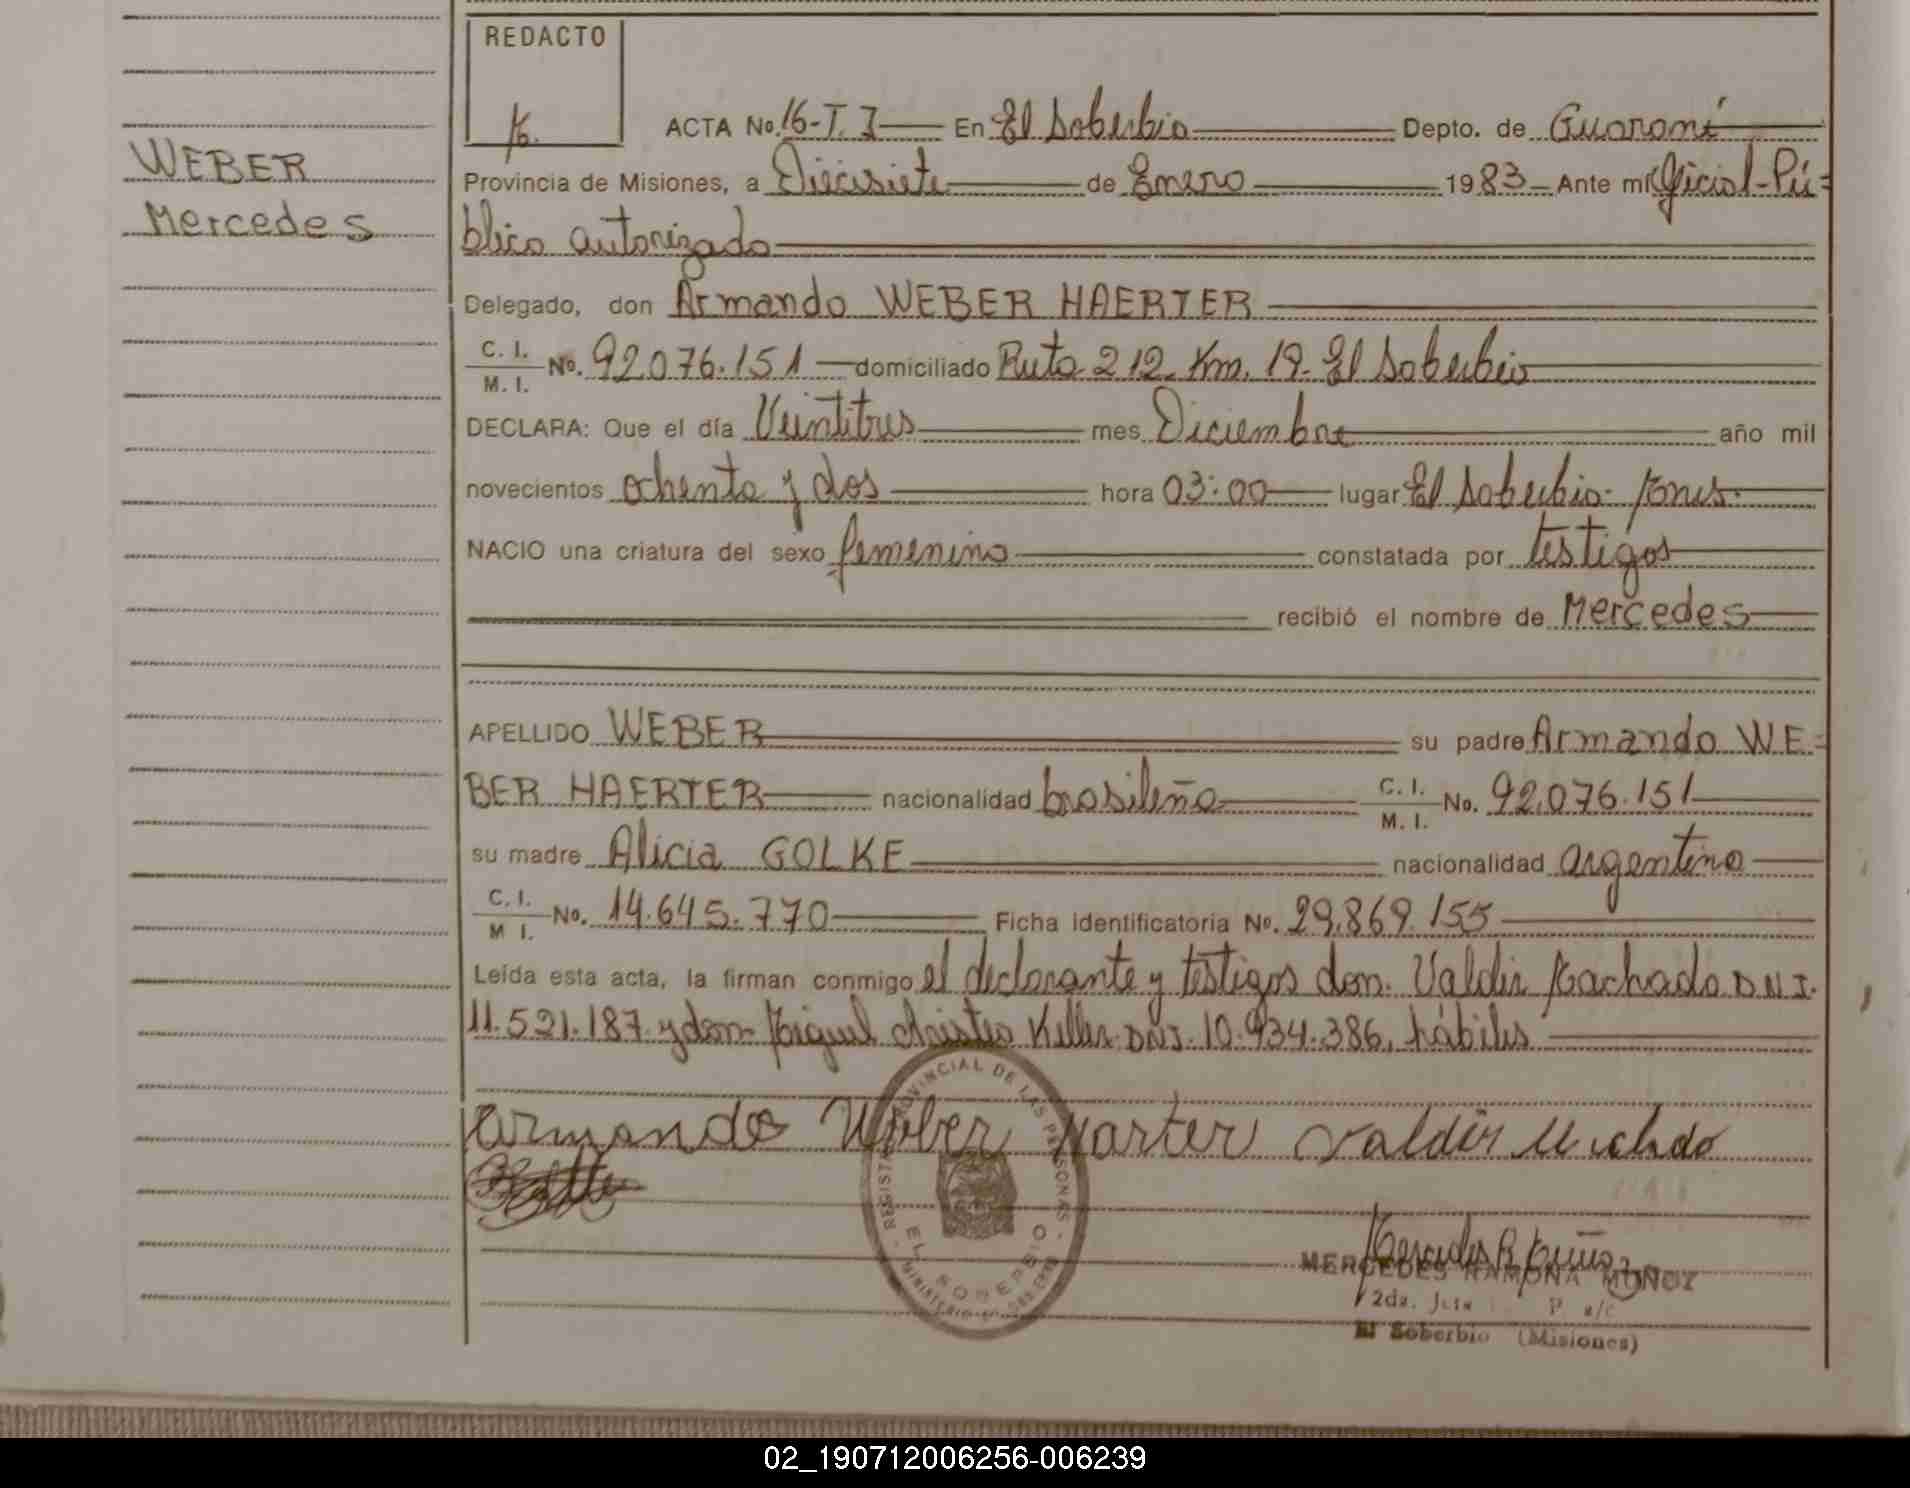 REDACTO
ACTA No. 16-T. I En El Soberbio Depto. de Guaraní
WEBER
Mercedes
Provincia de Misiones, a Diecisiete de Enero 1983 Ante mi Oficial-Pú=
blico autorizado
Delegado, don Armando WEBER HAERTER
C. I. M. I. No. 92.076.151 domiciliado Ruta 212. Km. 19. El Soberbio
DECLARA: Que el día Veintitres mes Diciembre año mil
novecientos ochenta y dos hora 03:00 lugar El Soberbio. Mnes.
NACIO una criatura del sexo femenino constatada por testigos
recibió el nombre de Mercedes
APELLIDO WEBER su padre Armando WE=
BER HAERTER nacionalidad brasileña C. I. M. I. No. 92.076.151
su madre Alicia GOLKE nacionalidad argentina
C. I. M I. No. 14.645.770 Ficha identificatoria No. 29.869.155
Leída esta acta, la firman conmigo el declarante y testigos don. Valdir Machado D.N.I.
11.521.187 y don Miguel Keller DNI. 10.934.386, hábiles
Armando Weber Harter Valdir
REGISTRO PROVINCIAL DE LAS PERSONAS
EL SOBERBIO
MERCEDES RAMONA MUÑOZ
El Soberbio (Misiones)
02_190712006256-006239